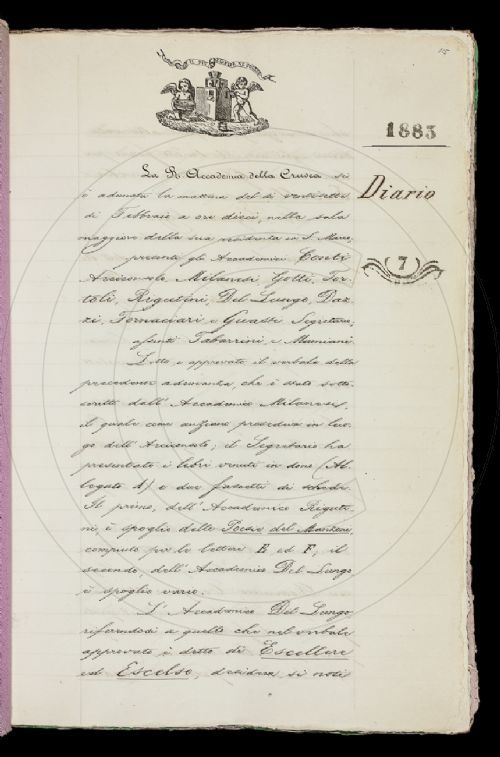 15
IL PIÙ BEL FIOR NE COGLIE
1883
La R. Accademia della Crusca si
è adunata la mattina del dì ventisette
di Febbraio a ore dieci, nella sala
maggiore della sua residenza in S. Marco,
presenti gli Accademici Conti
Arciconsolo, Milanesi, Gotti, Tor-
toli, Rigutini, Del Lungo, Daz-
zi, Fornaciari e Guasti Segretario;
assenti Tabarrini e Mamiani.
Diario
7
Letto e approvato il verbale della
precedente adunanza, che è stato sotto-
scritto dall' Accademico Milanesi,
il quale come anziano presedeva in luo-
go dell' Arciconsolo; il Segretario ha
presentato i libri venuti in dono (Al-
legato A) e due fascetti di schede.
Il primo, dell' Accademico Riguti-
ni, è spoglio delle Poesie del Manzoni,
compiuto per le lettere E ed F; il
secondo, dell' Accademico Del Lungo
è spoglio vario.
L' Accademico Del Lungo
riferendosi a quello che nel verbale
approvato è detto di Escellere
ed Escelso, desidera si noti